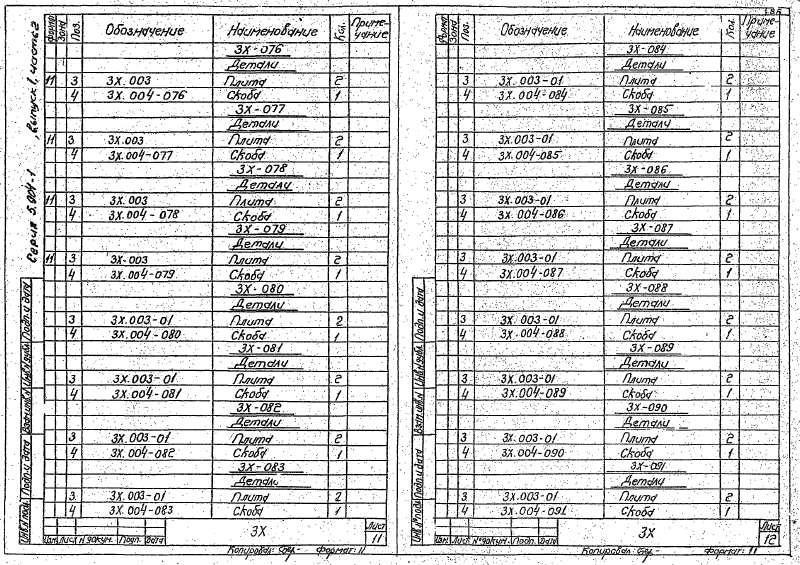 Серия 5.904-1 , выпуск 1, часть 2
Формат Зона Поз. Обозначение Наименование Кол. Примечание
3Х-076
Детали
11 3 3Х.003 Плита 2
4 3Х.004-076 Скоба 1
3Х-077
Детали
11 3 3Х.003 Плита 2
4 3Х.004-077 Скоба 1
3Х-078
Детали
11 3 3Х.003 Плита 2
4 3Х.004-078 Скоба 1
3Х-079
Детали
11 3 3Х.003 Плита 2
4 3Х.004-079 Скоба 1
3Х-080
Детали
3 3Х.003-01 Плита 2
4 3Х.004-080 Скоба 1
3Х-081
Детали
3 3Х.003-01 Плита 2
4 3Х.004-081 Скоба 1
3Х-082
Детали
3 3Х.003-01 Плита 2
4 3Х.004-082 Скоба 1
3Х-083
Детали
3 3Х.003-01 Плита 2
4 3Х.004-083 Скоба 1
Подп. и дата
Подп. и дата
3Х
Лист
11
Изм. Лист № докум. Подп. Дата
Копировал: Формат: 11
Зона Поз. Обозначение Наименование Кол. Примечание
3Х-084
Детали
3 3Х.003-01 Плита 2
4 3Х.004-084 Скоба 1
3Х-085
Детали
3 3Х.003-01 Плита 2
4 3Х.004-085 Скоба 1
3Х-086
Детали
3 3Х.003-01 Плита 2
4 3Х.004-086 Скоба 1
3Х-087
Детали
3 3Х.003-01 Плита 2
4 3Х.004-087 Скоба 1
3Х-088
Детали
3 3Х.003-01 Плита 2
4 3Х.004-088 Скоба 1
3Х-089
Детали
3 3Х.003-01 Плита 2
4 3Х.004-089 Скоба 1
3Х-090
Детали
3 3Х.003-01 Плита 2
4 3Х.004-090 Скоба 1
3Х-091
Детали
3 3Х.003-01 Плита 2
4 3Х.004-091 Скоба 1
Подп. и дата
Подп. и дата
3Х
Лист
12
Изм. Лист № докум. Подп. Дата
Копировал: Формат: 11